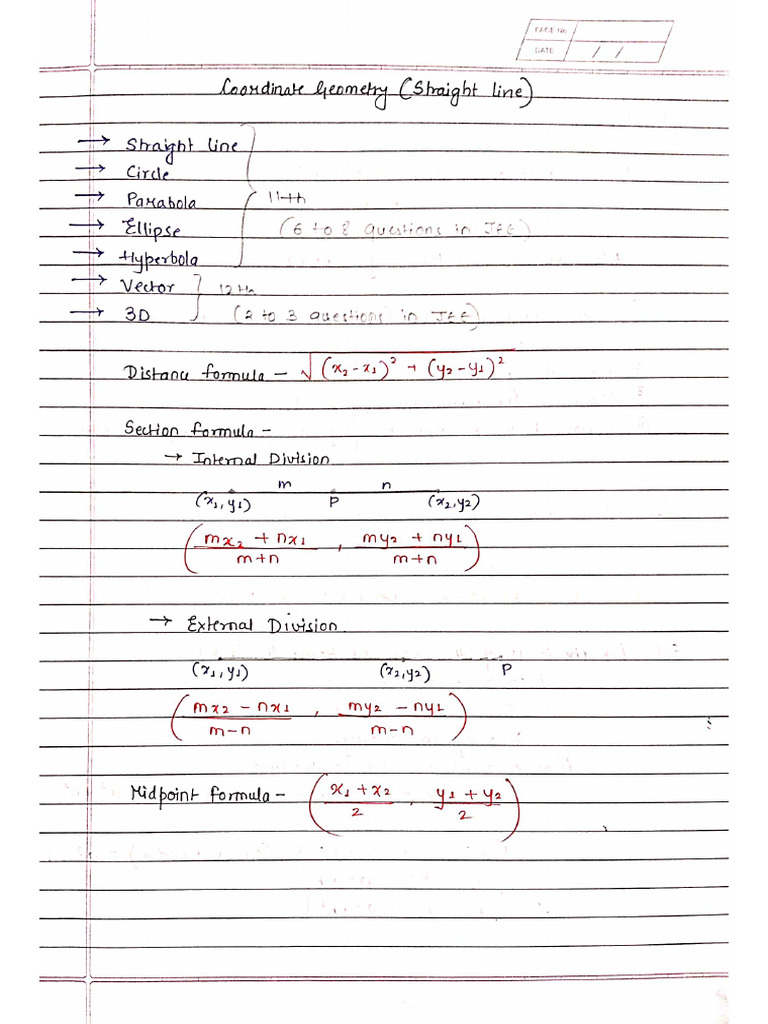 PAGE No.
DATE / /
Coordinate Geometry (Straight line)
→ Straight line
→ Circle
→ Parabola } 11th
→ Ellipse (6 to 8 questions in JEE)
→ Hyperbola
→ Vector } 12th
→ 3D (2 to 3 questions in JEE)
Distance formula - √(x₂-x₁)² + (y₂-y₁)²
Section formula -
→ Internal Division
m n
(x₁, y₁) P (x₂, y₂)
(mx₂ + nx₁ / m+n , my₂ + ny₁ / m+n)
→ External Division
(x₁, y₁) (x₂, y₂) P
(mx₂ - nx₁ / m-n , my₂ - ny₁ / m-n)
Midpoint formula - (x₁ + x₂ / 2 , y₁ + y₂ / 2)